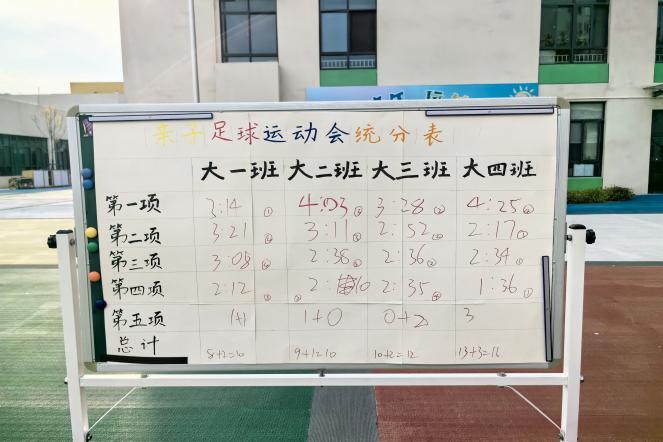 亲子足球运动会统分表
大一班 大二班 大三班 大四班
第一项 3:14 4:03 3:28 4:25
第二项 3:21 3:11 2:52 2:17
第三项 3:08 2:38 2:36 2:34
第四项 2:12 2: 10 2:35 1:36
第五项 1+1 1+0 0+2 3
总计 8+2=10 9+1=10 10+2=12 13+3=16